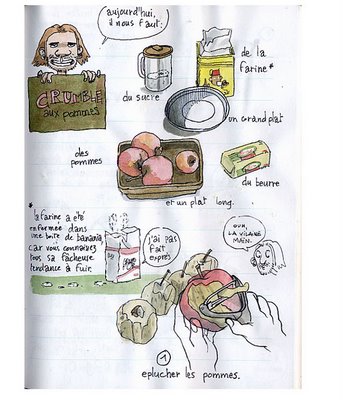 aujourd'hui,
il nous faut:
CRUMBLE
aux pommes
du sucre
de la
farine*
un grand plat
des
pommes
du beurre
et un plat long.
* la farine a été
enfermée dans
une boîte de banania,
car vous connaissez
tous sa fâcheuse
tendance à fuir.
j'ai pas
fait
exprès
OUH,
LA VILAINE
MAIN.
1
eplucher les pommes.